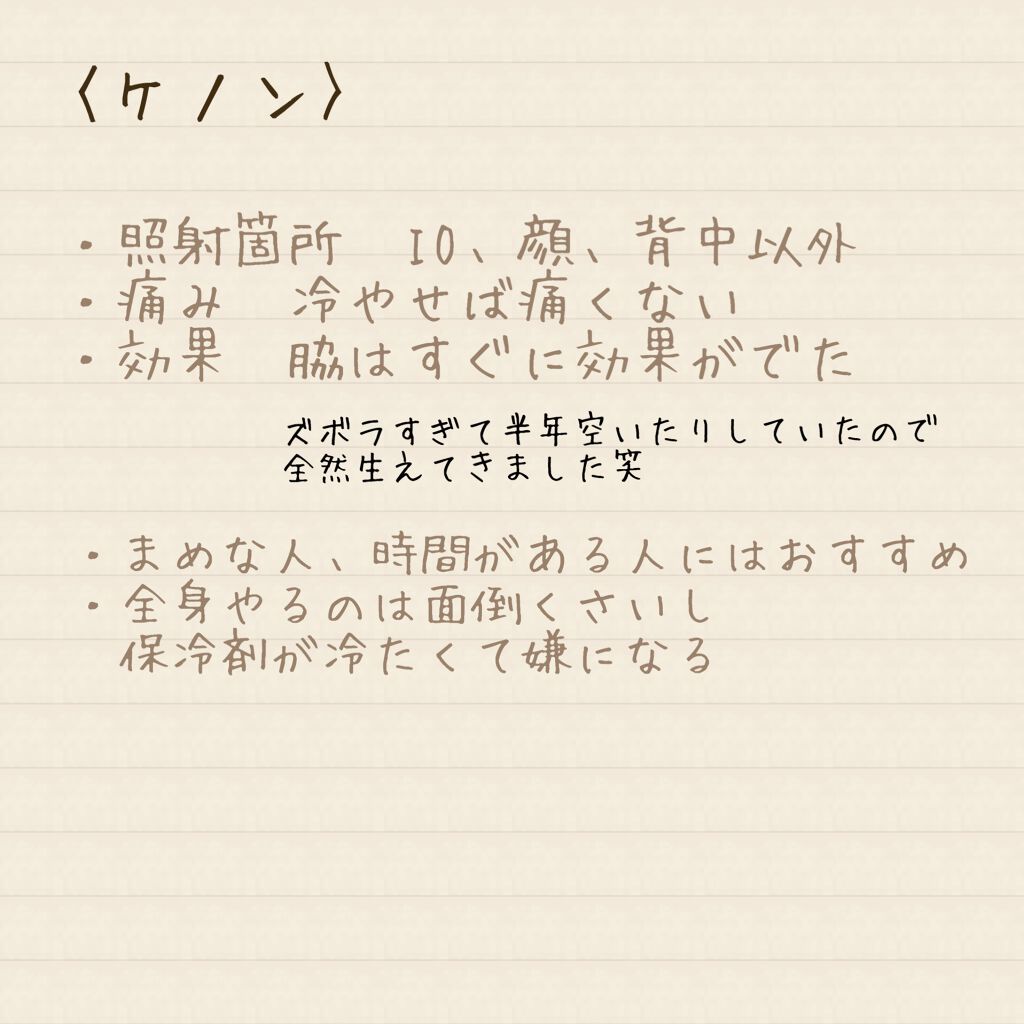 〈ケノン〉
・照射箇所　IO、顔、背中以外
・痛み　冷やせば痛くない
・効果　脇はすぐに効果がでた
ズボラすぎて半年空いたりしていたので
全然生えてきました笑
・まめな人、時間がある人にはおすすめ
・全身やるのは面倒くさいし
保冷剤が冷たくて嫌になる